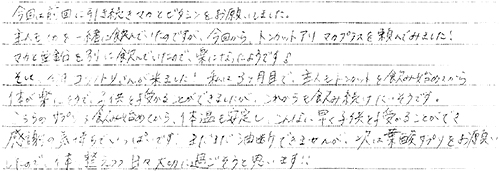 今回も前回に引き続きマカとビタミンをお願いしました。
主人も を一緒に飲んでいたのですが、今回から、トンカットアリ マカプラスを頼んでみました!
マカと亜鉛を別に飲んでいたので、楽になったようです♪
そして、今月 が来ました! 私は3ヶ月目で、主人もトンカットを飲み始めてから
体が楽 、子供を授かることができましたが、これからも飲み続けたいそうです。
こちらのサプリを飲み始めてから、体温も安定し、こんなに早く子供を授かることができ
感謝の気持ちでいっぱいです。まだまだ油断できませんが、次は葉酸サプリをお願い
したので、体 整えつつ 日々大切に過ごそうと思います!!